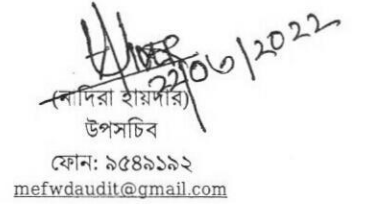 ২২/০৬/২০২২
(নাদিরা হায়দার)
উপসচিব
ফোন: ৯৫৪৯১৯২
mefwdaudit@gmail.com